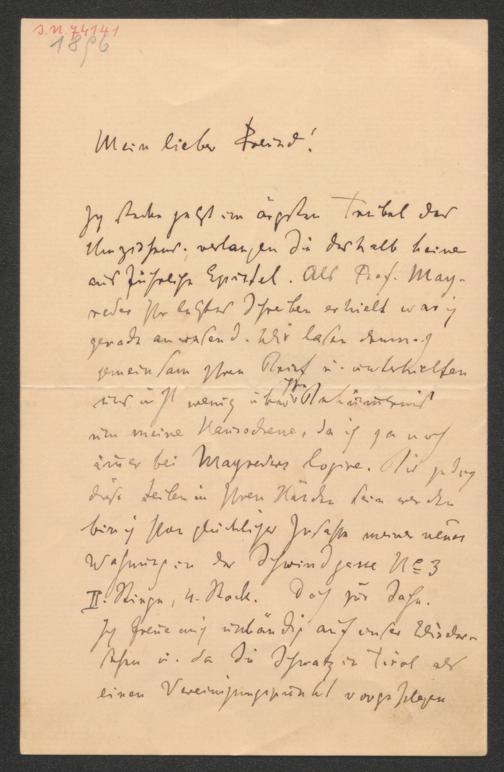 I.N. 74141
1896
Mein lieber Freund!
Ich stecke jetzt im ärgsten Trubel des
Umziehens, verlangen Sie deshalb keine
ausführliche Epistel. Als Prof. May-
reder Ihr letztes Schreiben erhielt war ich
gerade anwesend. Wir lasen demnach
gemeinsam Ihren Brief u. unterhielten
uns nicht wenig über Ihre
um meine Hausadresse, da ich ja noch
immer bei Mayreders logire. Bis jedoch
diese Zeilen in Ihren Händen sein werden
bin ich schon glücklicher Insasse meiner neuen
Wohnung in der Schwindgasse No 3
II. Stiege, 4. Stock. Doch zur Sache.
Ich freue mich unbändig auf unser Wieder-
sehen u. da Sie Schwatz in Tirol als
einen Vereinigungspunkt vorgeschlagen